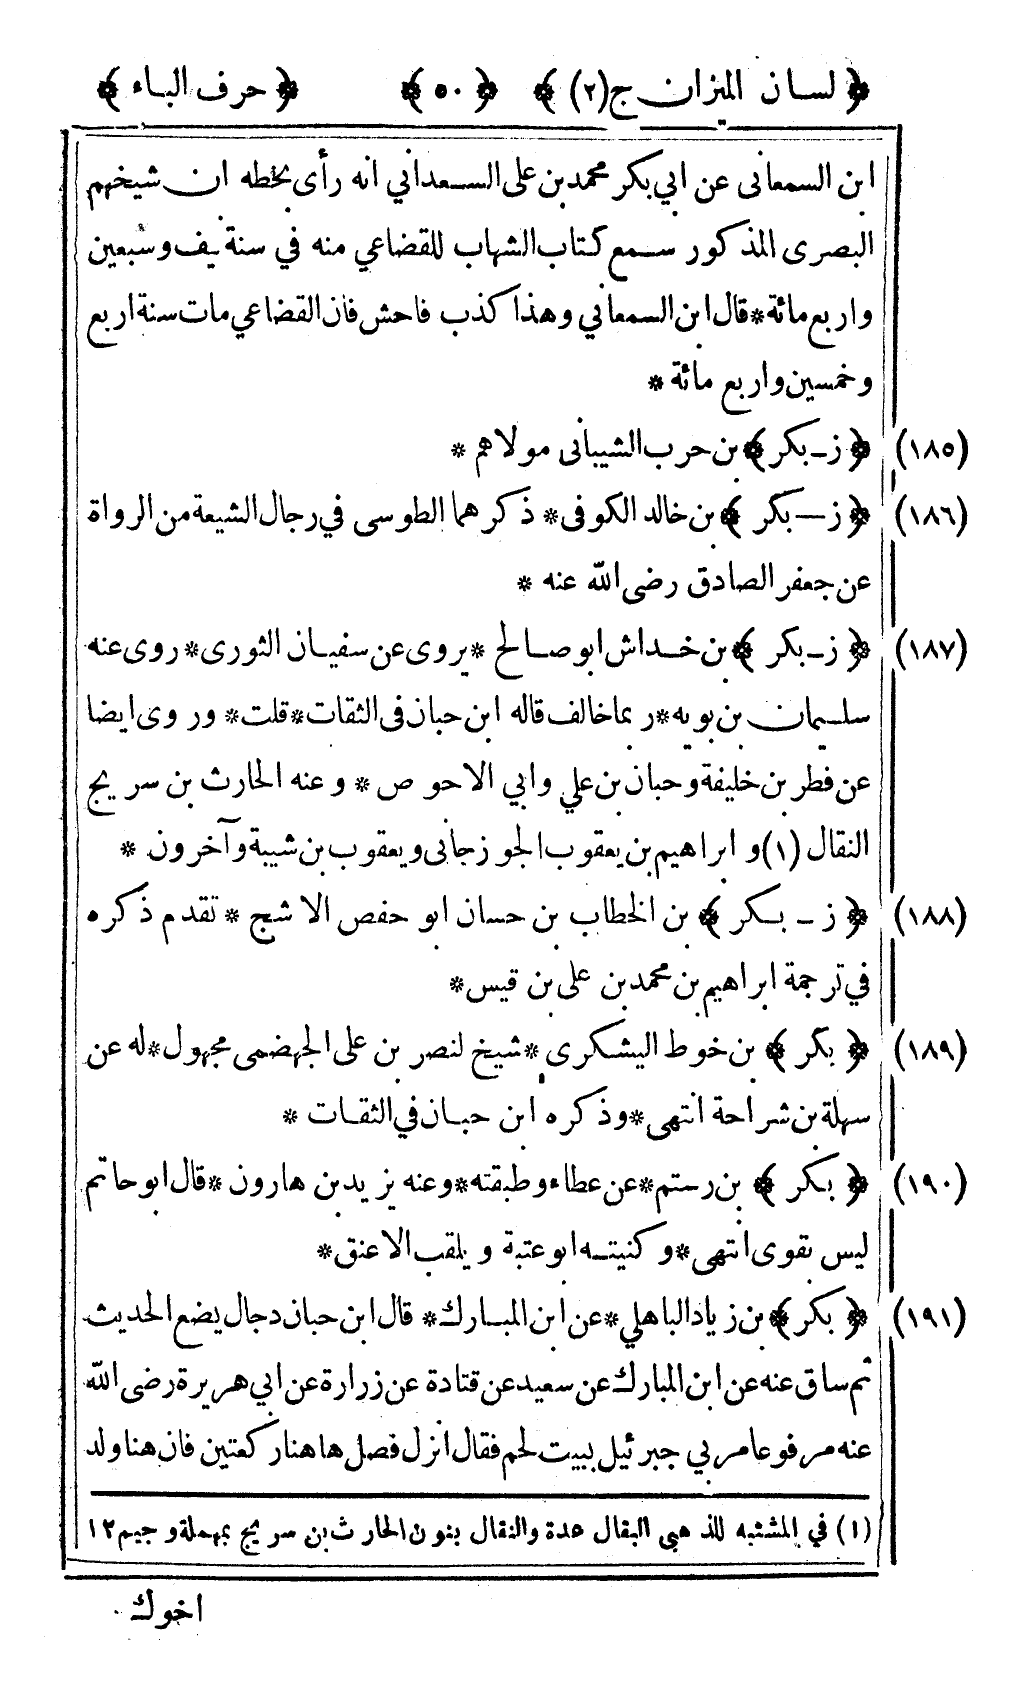 ﴿ لسان الميزان ج(٢) ﴾ ﴿ ٥٠ ﴾ ﴿ حرف الباء ﴾
ابن السمعانى عن ابي بكر محمد بن على السعداني انه رأى بخطه ان شيخهم
البصرى المذكور سمع كتاب الشهاب للقضاعي منه في سنة يف وسبعين
واربع مائة * قال ابن السمعاني وهذا كذب فاحش فان القضاعي مات سنة اربع
وخمسين واربع مائة *
(١٨٥) ﴿ ز ـ بكر ﴾ بن حرب الشيبانى مولاهم *
(١٨٦) ﴿ ز ـ بكر ﴾ بن خالد الكوفى * ذكرهما الطوسى في رجال الشيعة من الرواة
عن جعفر الصادق رضى الله عنه *
(١٨٧) ﴿ ز ـ بكر ﴾ بن خداش ابو صالح * يروى عن سفيان الثورى * روى عنه
سليمان بن بويه * ربما خالف قاله ابن حبان فى الثقات * قلت * وروى ايضا
عن فطر بن خليفة وحبان بن علي وابي الاحوص * وعنه الحارث بن سريج
النقال (١) و ابراهيم بن يعقوب الجوزجانى ويعقوب بن شيبة وآخرون *
(١٨٨) ﴿ ز ـ بكر ﴾ بن الخطاب بن حسان ابو حفص الاشج * تقدم ذكره
في ترجمة ابراهيم بن محمد بن على بن قيس *
(١٨٩) ﴿ بكر ﴾ بن خوط اليشكرى * شيخ لنصر بن على الجهضمى مجهول * له عن
سهلة بن شراحة انتهى * وذكره ابن حبان في الثقات *
(١٩٠) ﴿ بكر ﴾ بن رستم * عن عطاء وطبقته * وعنه يزيد بن هارون * قال ابو حاتم
ليس بقوى انتهى * وكنيته ابو عتبة ويلقب الاعنق *
(١٩١) ﴿ بكر ﴾ بن زياد الباهلي * عن ابن المبارك * قال ابن حبان دجال يضع الحديث
ثم ساق عنه عن ابن المبارك عن سعيد عن قتادة عن زرارة عن ابي هريرة رضى الله
عنه مرفوعا مر بي جبرئيل ببيت لحم فقال انزل فصل هاهنا ركعتين فان هنا ولد
(١) في المشتبه للذهبى البقال عدة والنقال بنون الحارث بن سريج بمهملة وجيم ١٢
اخوك